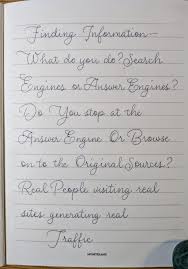 Finding Information—
What do you do? Search
Engines or Answer Engines?
Do You stop at the
Answer Engine Or Browse
on to the Original Sources?
Real People visiting real
sites generating real
Traffic